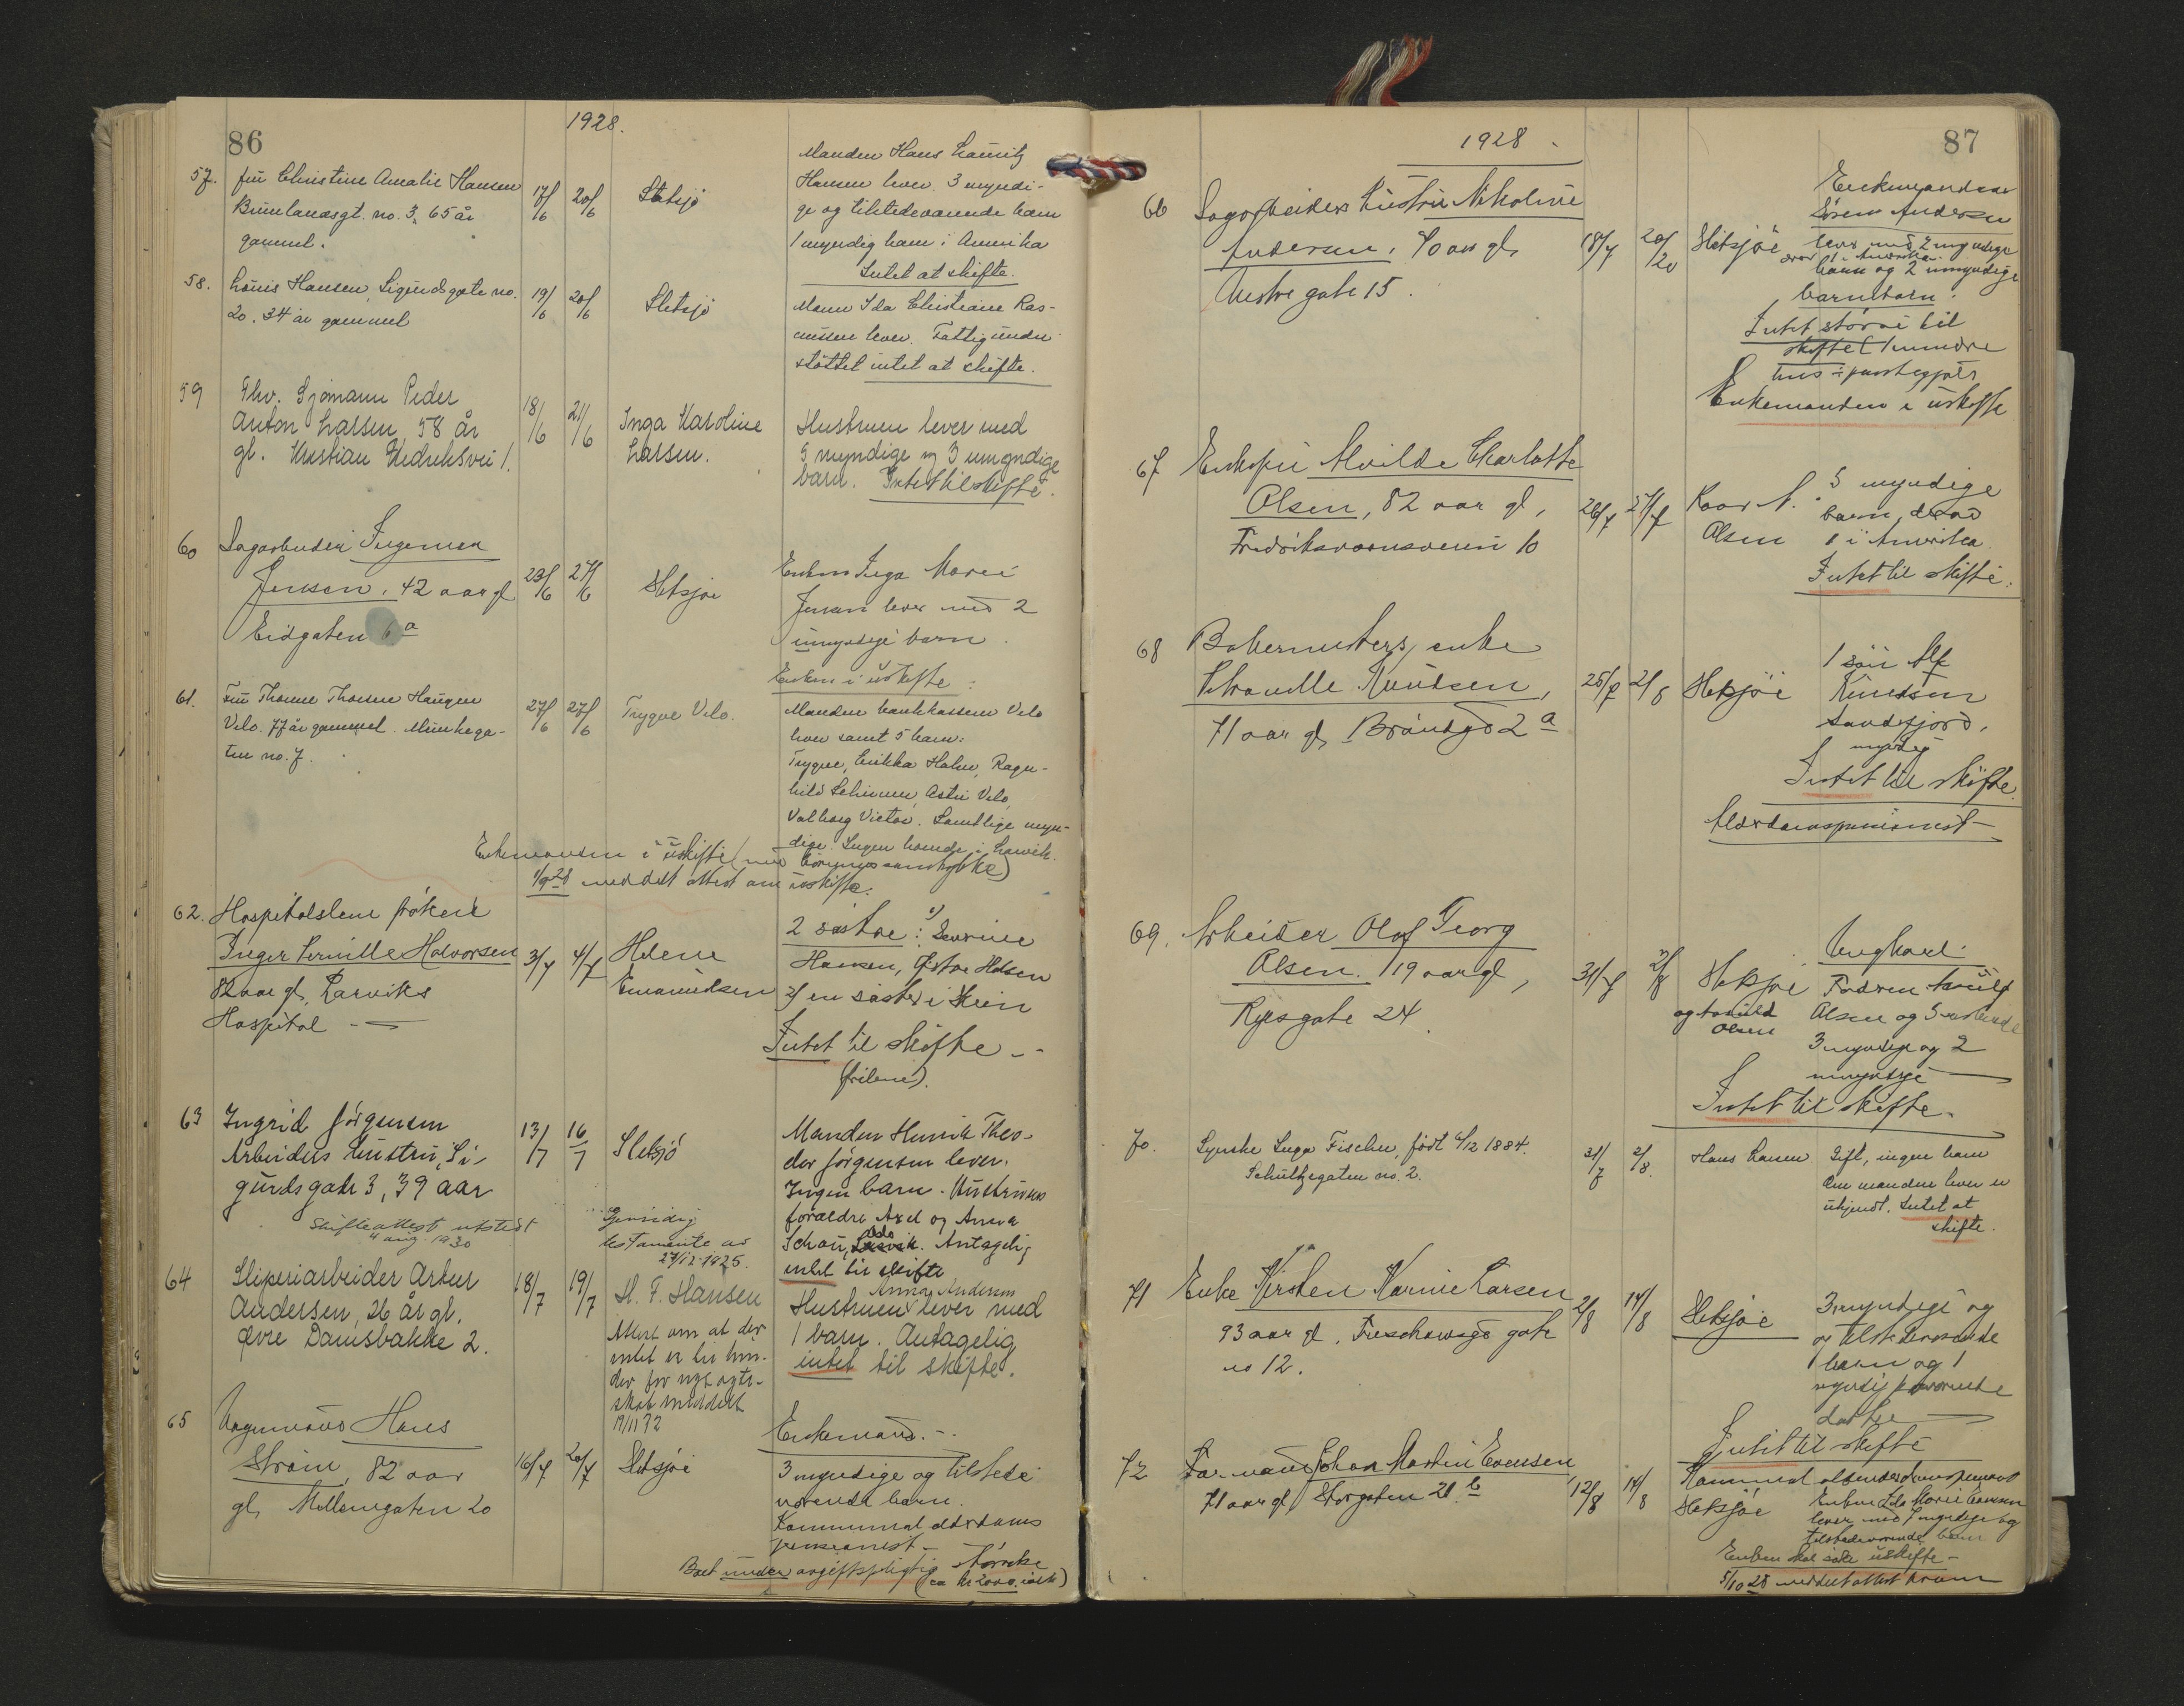 86
1928.
57. fru Christine Amalie Hansen
Brunlanæsgt. no. 3, 65 år
gammel.
17/6 20/6
Sletsjö
Manden Hans Lauritz
Hansen lever. 3 myndi-
ge og tilstedeværende barn
1 myndig barn i Amerika
Intet at skifte.
58. Louis Hansen, Sigurdsgate no.
20. 34 år gammel
19/6 20/6
Sletsjö
Ida Christiane Ras-
mussen lever. Fattigunder-
støttet intet at skifte.
59 Fhv. Sjömann Peder
Anton Larsen, 58 år
gl. Kristian Fredriksvei 1.
18/6 21/6
Inga Karoline
Larsen.
Hustruen lever med
5 myndige og 3 umyndige
barn. Intet til skifte.
60 Sagarbeider Ingeman
Jensen, 42 aar gl
Eidgaten 6a
23/6 27/6
Sletsjøe
Enken Inga Marie
Jensen lever med 2
umyndige barn.
Enken i uskifte.
61. Fru Thonne Thorine Haugen
Velo. 77 år gammel. Munkega-
ten no. 7.
27/6 27/6
Trygve Velo.
Manden bankkasserer Velo
lever samt 5 barn:
Trygve, Erikka Holm, Ragn-
hild Schinn, Astri Velo,
Valborg Victor. Samtlige myn-
dige. Ingen boende i Larvik.
Enkemanden i uskifte (med börnenes samtykke)
1/9 28 meddelt attest om uskifte.
62. Hospitalslem fröken
Inger Pernille Halvorsen
82 aar gl, Larviks
Hospital
3/7 4/7
Helene
Emanuelsen
2 søstre: 1) Severine
Hansen, Østre Halsen
2) en søster i Skien
Intet til skifte
(frilem).
63 Ingrid Jörgensen
Arbeiders hustru, Si-
gurdsgate 3, 39 aar
13/7 16/7
Sletsjö
Manden Henrik Theo-
dor Jörgensen lever.
Ingen barn. Hustruens
foreldre Axel og Anna
Schou, Larvik. Antagelig
intet til skifte
Skifteattest utstedt
4 aug. 1930
Gjensidig
testamente av
27/12 1925.
64 Sliperiarbeider Artur
Andersen, 26 år gl.
Øvre Damsbakke 2.
18/7 19/7
H. F. Hansen
Attest om at der
intet er til hin-
der for nyt egte-
skab meddelt
17/11 32
Anna Andersen
Hustruen lever med
1 barn. Antagelig
intet til skifte.
65 Vognmand Hans
Ström, 82 aar
gl, Møllergaten 20
16/7 20/7
Sletsjöe
Enkemand.
3 myndige og tilstede
værende barn.
Kommunal alderdoms
pensionist
Boet under avgiftspligtig størrelse
(ca kr 2000. ialt)
1928.
87
66 Sagarbeiders hustru Nikoline
Andersen, 70 aar gl,
Vestre gate 15.
18/7 20/20
Sletsjöe
Enkemanden
Sören Andersen
lever med 2 myndige
derav 1 i Amerika
barn og 2 umyndige
barnebarn.
Intet större til
skiftet
Enkemanden i uskifte
67 Enkefru Alvilde Charlotte
Olsen, 82 aar gl,
Fredriksværnsveien 10
26/7 27/7
Kaar A.
Olsen
5 myndige
barn, derav
1 i Amerika
Intet til skifte.
68 Bakermesters enke
Petronelle Knudsen,
71 aar gl, 2a
25/7 2/8
Sletsjöe
1 sön Alf
Knudsen
Sandefjord,
myndig
Intet til skifte.
Alderdomspensionist
69. Arbeider Olaf Georg
Olsen. 19 aar gl,
Ryesgate 24
31/7 2/8
Sletsjöe
og Arnulf
Olsen
Ungkarl
Faderen Arnulf
Olsen og 5 søskende
3 myndige og 2
umyndige
Intet til skifte.
70. Synske Inga Fischer, född 6/12 1884.
Schultzegaten no. 2.
31/7 2/8.
Hans Larsen
Gift, ingen barn
Om manden lever er
ukjendt. Intet at
skifte.
71 Enke Kirsten Karine Larsen
93 aar gl, Treschowsgs gate
no 12.
2/8 14/8
Sletsjöe
3 myndige og
og tilstedeværende
barn og 1
myndig fraværende
datter
Intet til skifte
72 Formand Johan Martin Evensen
71 aar gl, Storgaten 21 b
12/8 14/8
Sletsjöe
Kommunal alderdomspensionist
Enken Ida Marie Evensen
lever med myndige og
tilstedeværende barn
Enken skal söke uskifte
5/10 28 meddelt attest herom